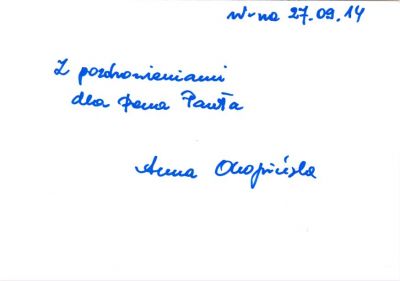 W-wa 27.09.14
Z pozdrowieniami
dla Pana Pawła
Anna Okopińska